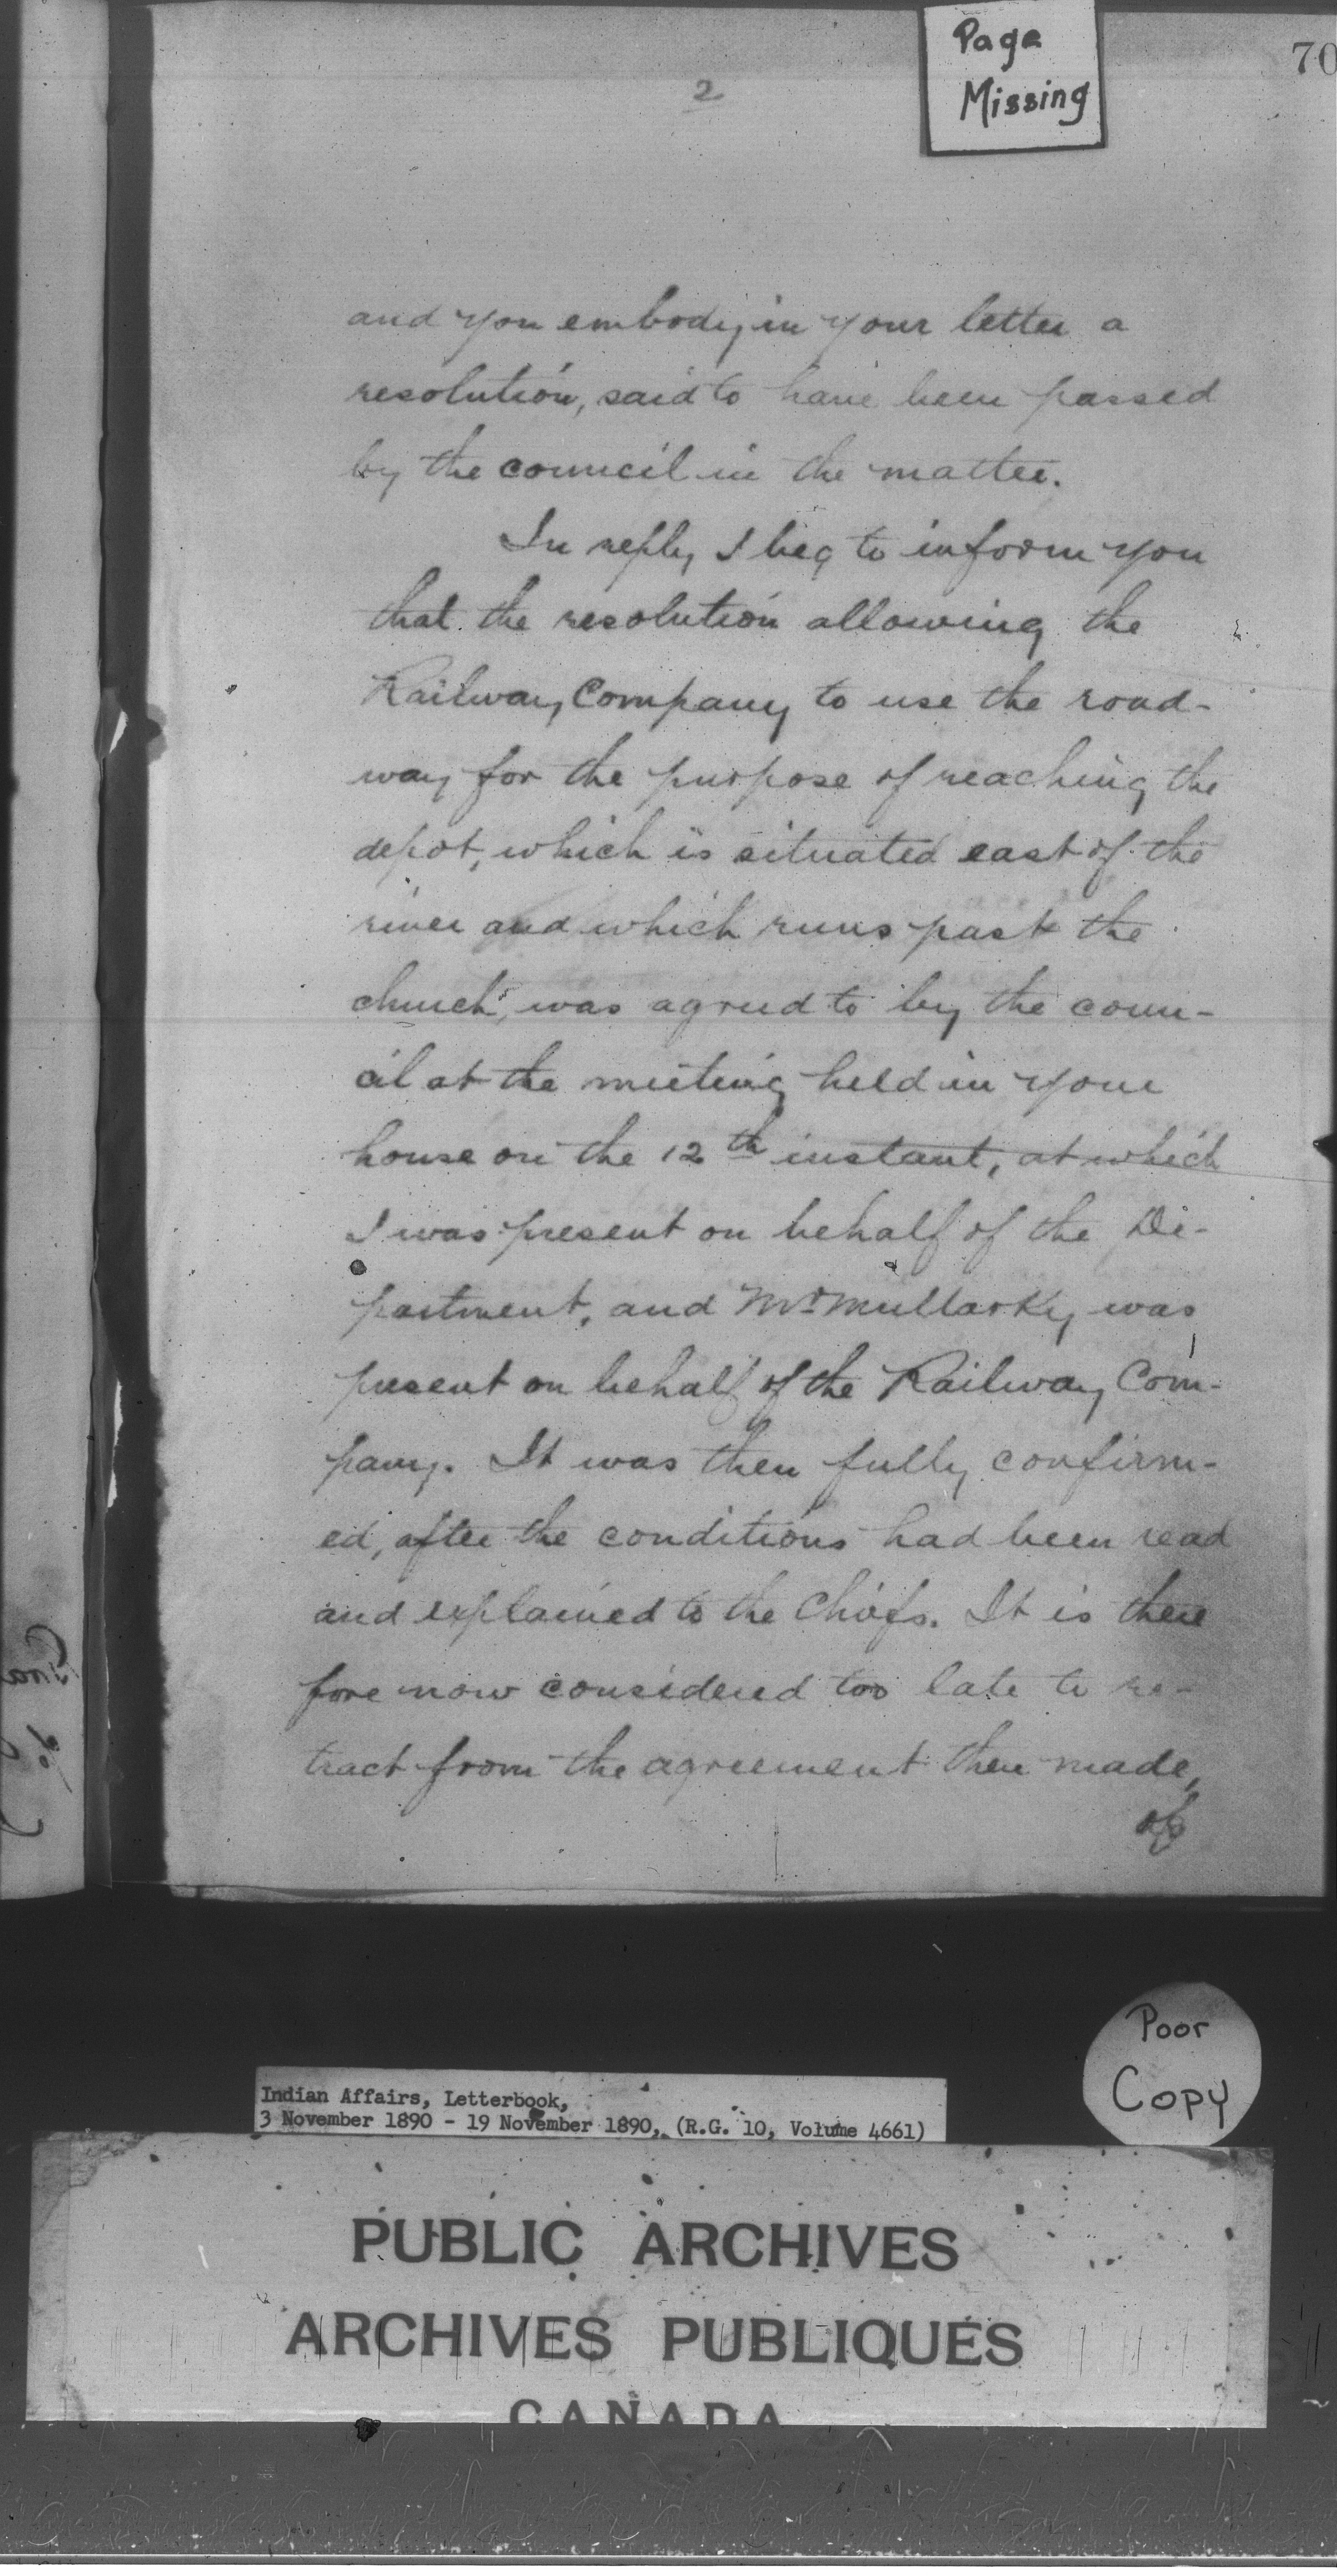 Page
Missing
70
2
and you embody in your letter a
resolution, said to have been passed
by the council in the matter.
In reply I beg to inform you
that the resolution allowing the
Railway Company to use the road-
way for the purpose of reaching the
depot, which is situated east of the
river and which runs past the
church, was agreed to by the coun-
cil at the meeting held in your
house on the 12th instant, at which
I was present on behalf of the De-
partment, and Mr Mullarky was
present on behalf of the Railway Com-
pany. It was then fully confirm-
ed, after the conditions had been read
and explained to the Chiefs. It is there
fore now considered too late to re-
tract from the agreement then made,
of
Poor
Copy
Indian Affairs, Letterbook,
3 November 1890 - 19 November 1890, (R.G. 10, Volume 4661)
PUBLIC ARCHIVES
ARCHIVES PUBLIQUES
CANADA